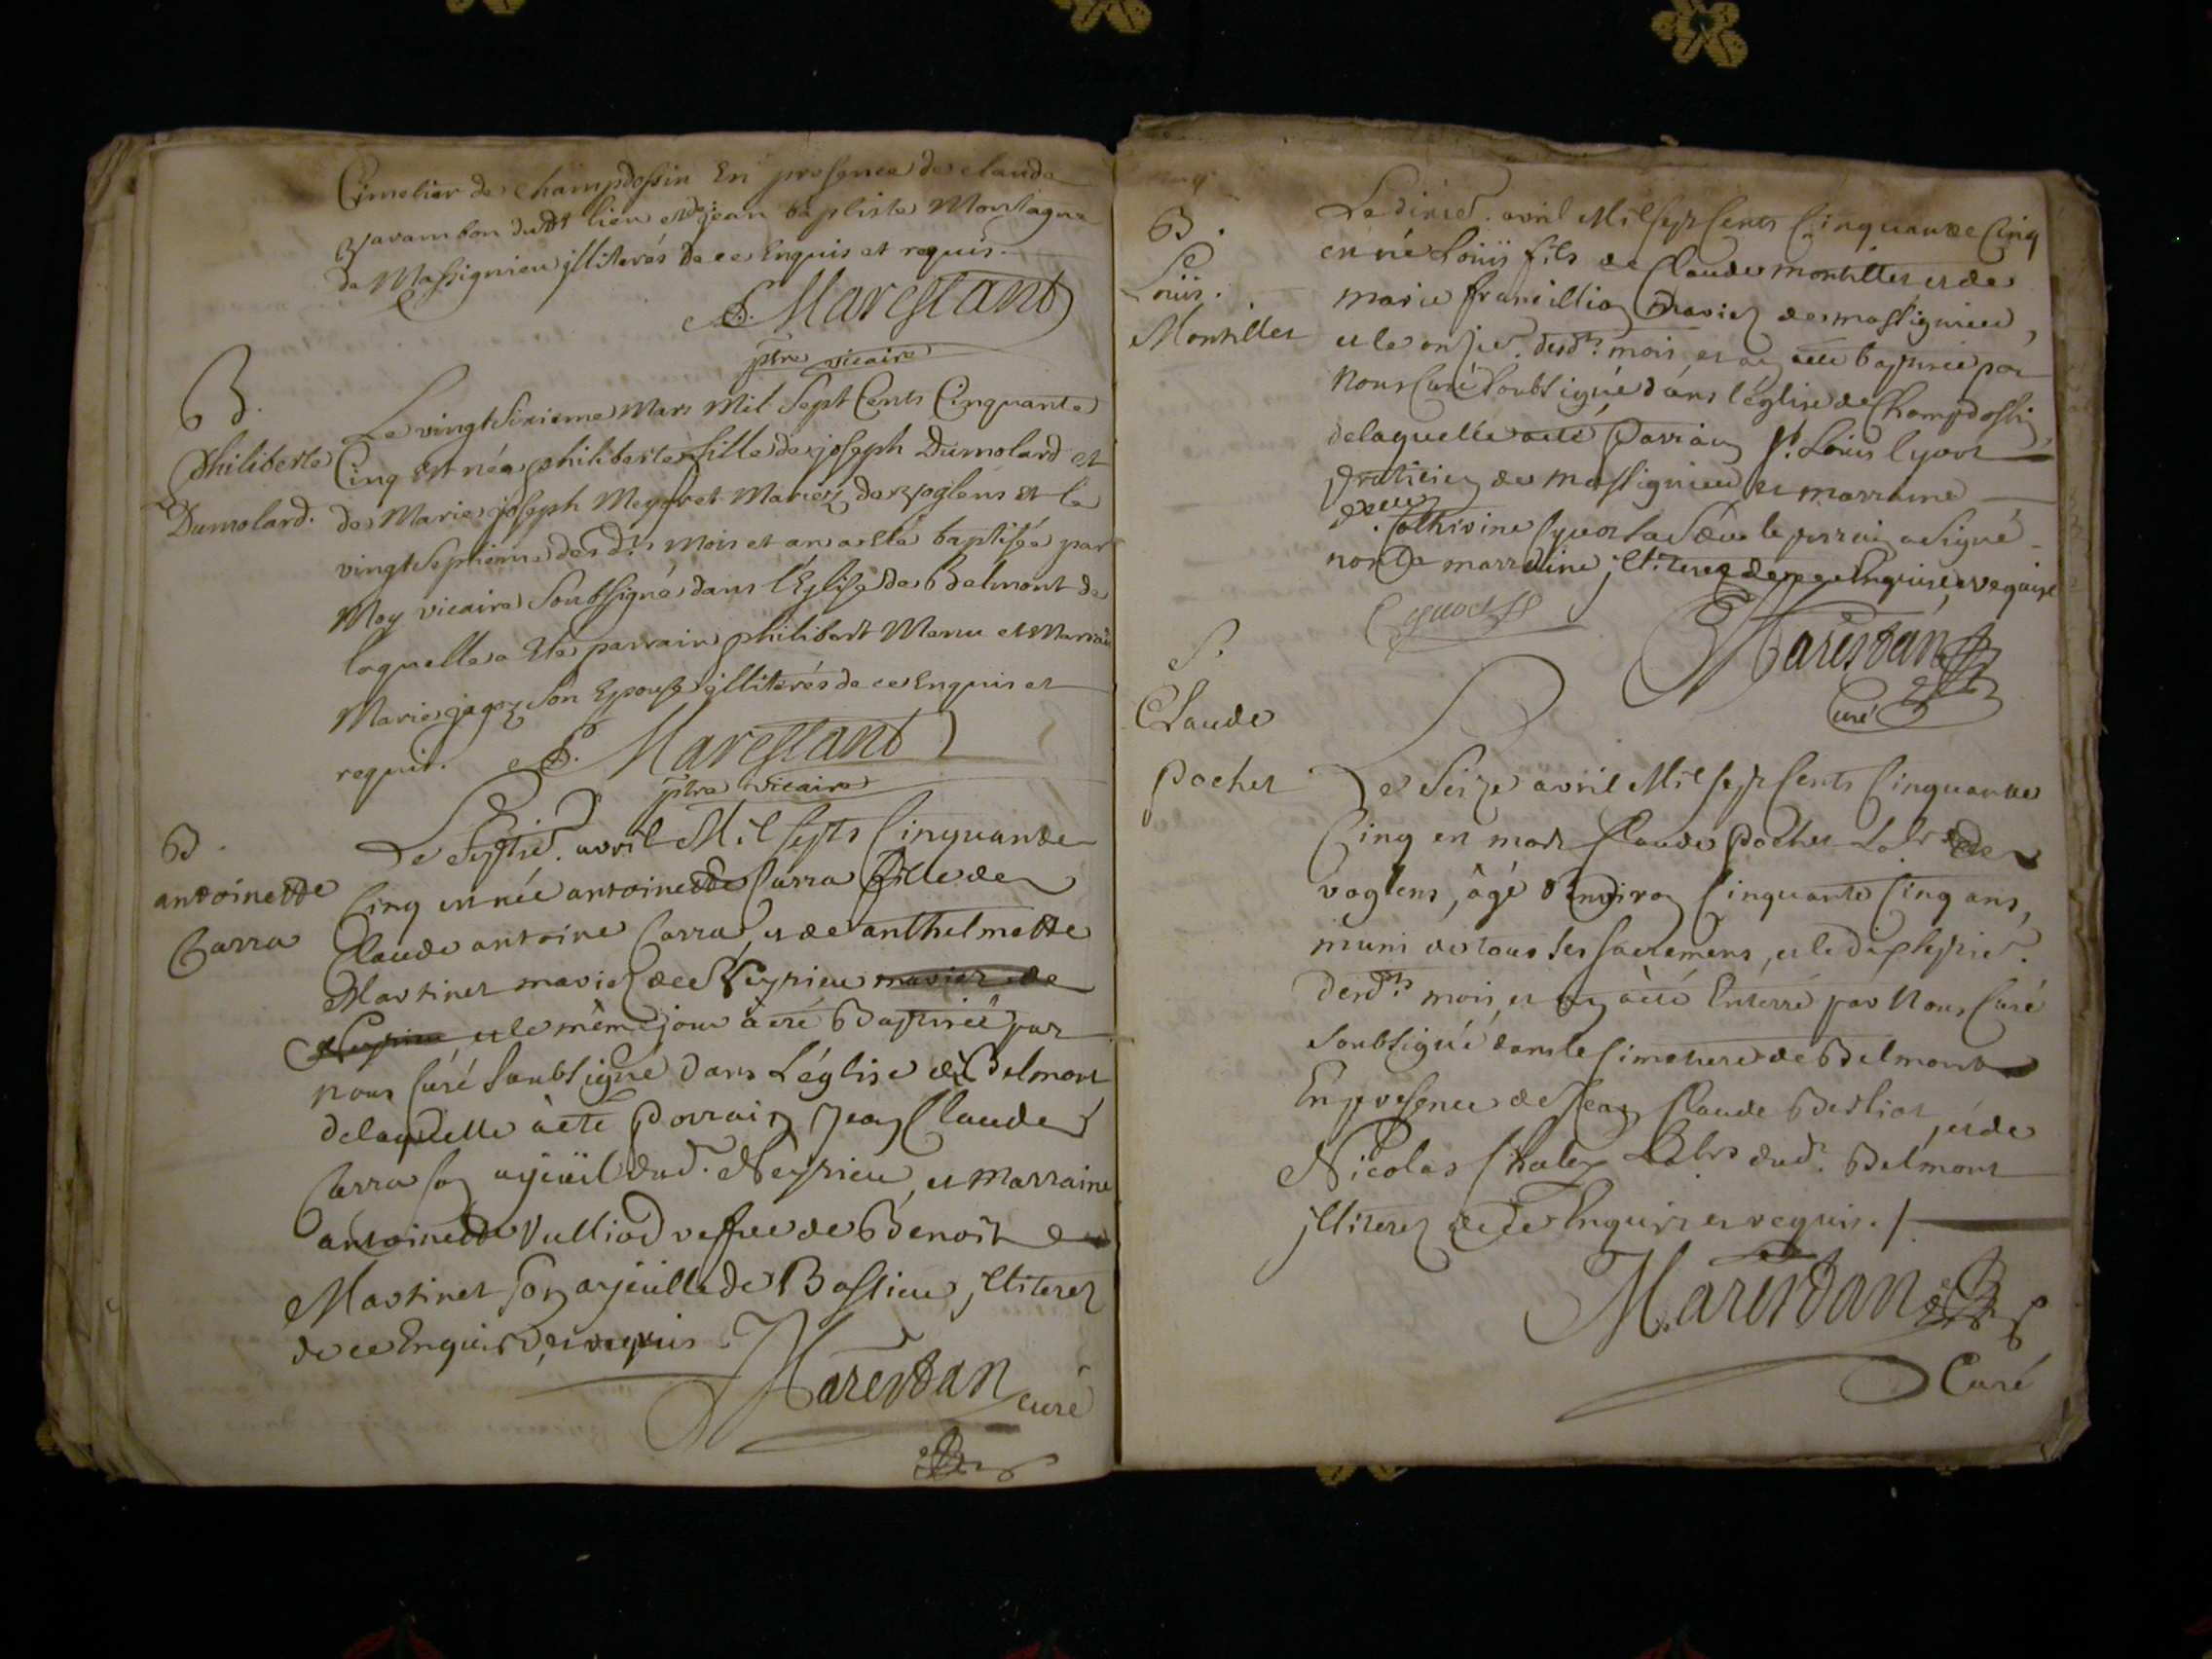 Cimetier de Champdossin En presence de claude
Varambon dudt lieu et de jean baptiste Montagne
de Massignieu jlliterés de ce Enquis et requis.
Marestant
ptre vicaire
B.
philiberte
Dumolard.
Le vingt Sixieme Mars Mil Sept Cents Cinquante
Cinq est née philiberte fille de joseph Dumolard et
de Marie joseph Megret Mariez de voglens et le
vingt Septieme desdts Mois et an a esté baptisée par
Moy vicaire Soubsigné dans l'Eglise de Belmont de
laquelle a Eté parrain philibert Manu et Marraine
Marie Son Epouse jlliterés de ce Enquis et
requis.
Marestant
ptre vicaire
B.
antoinette
Carra
Le Septie. avril Mil Septs Cinquante
Cinq est née antoinette Carra fille de
Claude antoine Carra, et de anthelmette
Martinet mariez de Neyrieu mariez de
Neyrieu et le même jour à eté Baptisée par
nous Curé Soubsigné dans L'église de Belmont
delaquelle à eté Parrain Jean Claude
Carra son ayeüil dud. Neyrieu, et Marraine
antoinette Vulliod veffve de Benoit
Martinet son ayeuille de Bassieu jlliterez
de ce Enquis et requis
Marestan curé
B.
Loüis.
Montillet
Le dixie. avril Mil Sept Cents Cinquante Cinq
est né Loüis fils de Claude montillet et de
marie francillion Mariez de massignieu,
et le onzie. desdts. mois et an a été baptisé par
Nous Curé Soubsigné dans l'église de Champdossin,
delaquelle a eté Parrain Sr. Loüis Cyvoct
praticien de massignieu et marraine
delle
Catherine Cyvoct sa Sœur le parrain a Signé
non la marraine jlliterez de ce Enquise et requise
Cyvoct
Marestan
Curé
S.
Claude
Pochet
Le Seize avril Mil Sept Cents Cinquante
Cinq est mort Claude Pochet Labr de
voglens, âgé d'environ Cinquante Cinq ans,
muni de tous les sacremens, et le dix septie.
desdts. mois, et an à eté Enterré par Nous Curé
soubsigné dans le Cimetiere de Belmont
En presence de Jean Claude Berliot, et de
Nicolas Chaley Labrs dud. Belmont
jlliterez de ce Enquis et requis. /
Marestan
Curé